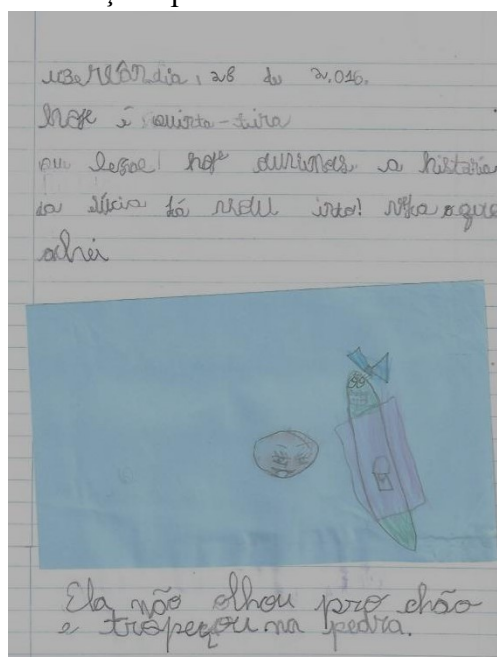 uberlândia, 28 de 2.016.
hoje é quinta-feira
que legal! hoje ouvimos a história
da lúcia já vou isto! veja o que
achei
Ela não olhou pro chão
e tropeçou na pedra.